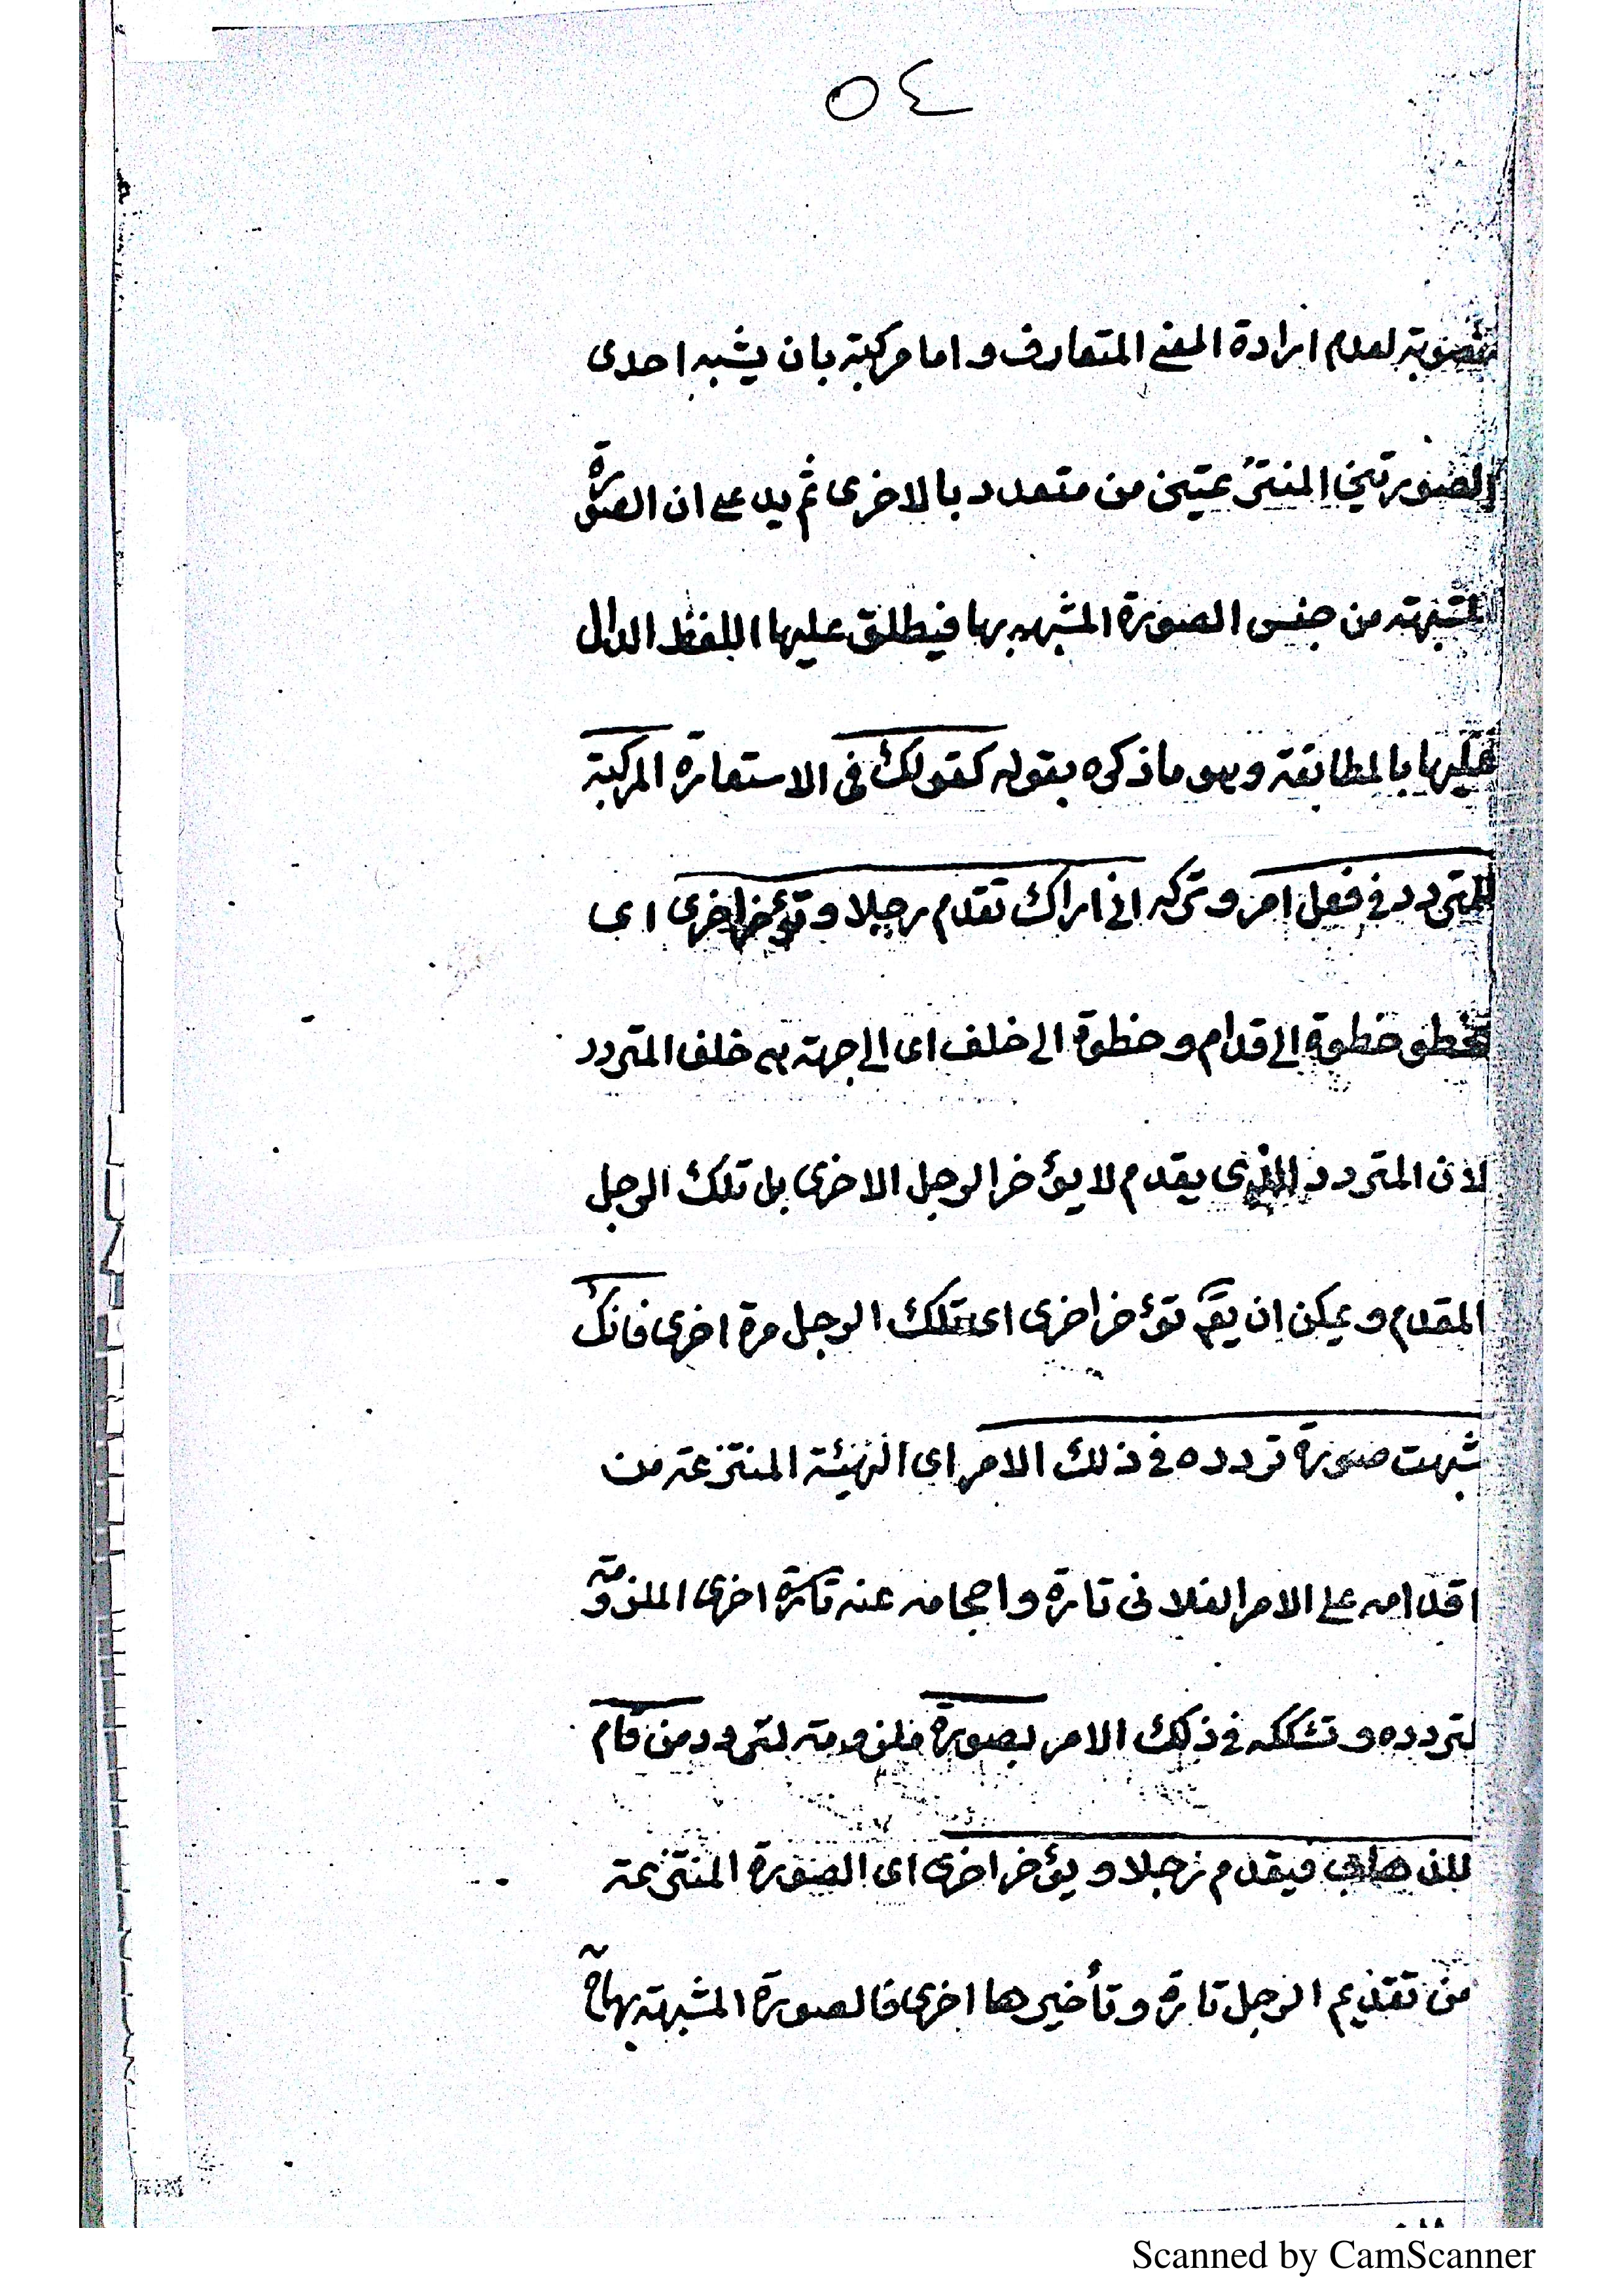 ٥٤
لعدم ارادة المعنے المتعارف واما مركبة بان يشبه احدى
الصورتين المنتزعتين من متعدد بالاخرى ثم يدعے ان الصورة
المشبهة من جنس الصورة المشبهه بها فيطلق عليها اللفظ الدال
عليها بالمطابقة وهو ما ذكره بقوله كقولك فى الاستعارة المركبة
للمتردد فے فعل امر وتركه انى اراك تقدم رجلا وتؤخر اخرى اى
تخطو خطوة الے قدام وخطوة الے خلف اى الے جهة هے خلف المتردد
لان المتردد الذى يقدم لا يؤخر الرجل الاخرى بل تلك الرجل
المقدم ويمكن ان يقٓم تؤخر اخرى اى تلك الرجل مرة اخرى فانك
شبهت صورة تردده فے ذلك الامر اى الهيئة المنتزعة من
اقدامه علے الامر الفلانى تارة واحجامه عنه تارة اخرى الملزومة
لتردده وتشككه فے ذلك الامر بصورة ملزومة لتردد من قام
للذهاب فيقدم رجلا ويؤخر اخرى اى الصورة المنتزعة
من تقديم الرجل تارة وتأخيرها اخرى فالصورة المشبهة بها حٓ
Scanned by CamScanner